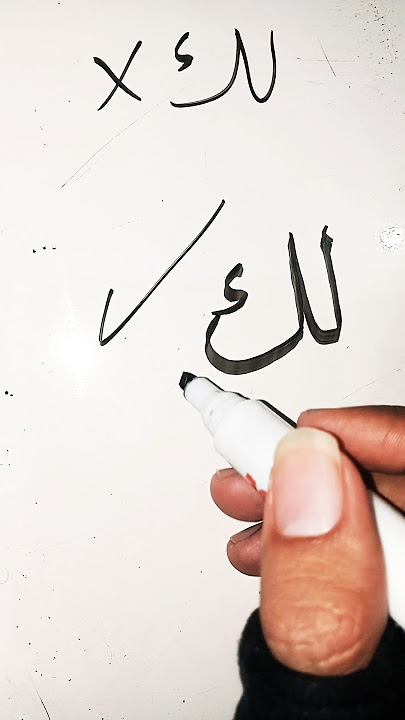 لك ×
لك ✓